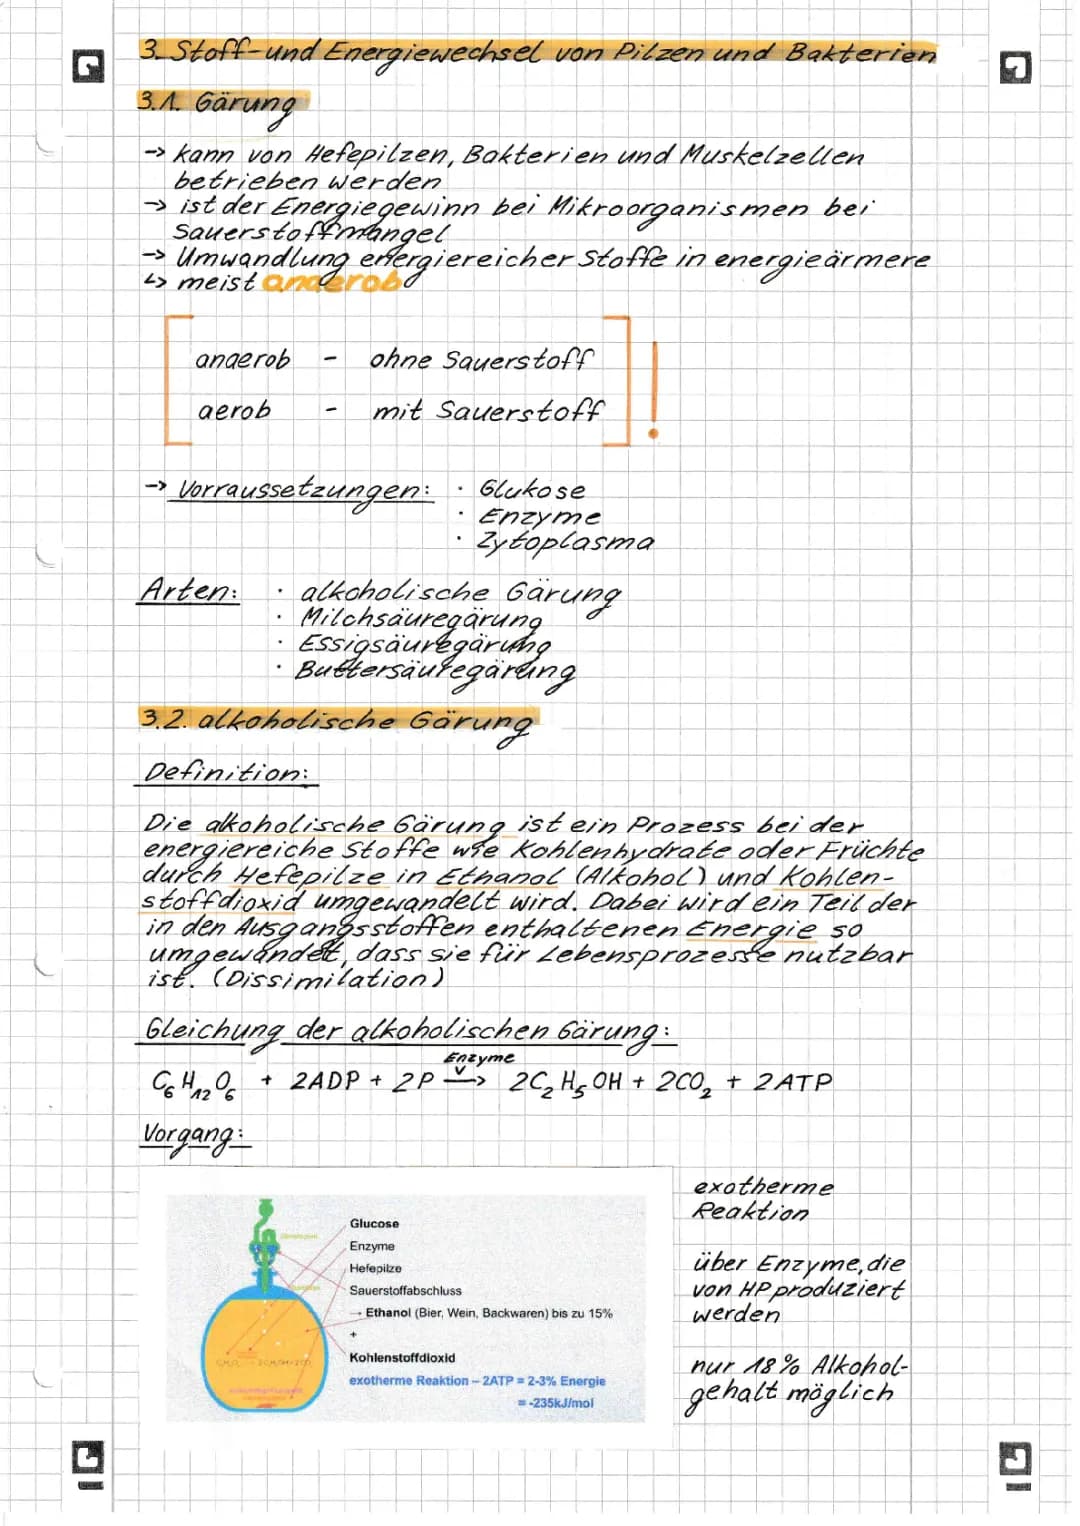 3. Stoff-und Energiewechsel von Pilzen und Bakterien
3.1. Gärung
-> kann von Hefepilzen, Bakterien und Muskelzellen
betrieben werden
-> ist der Energiegewinn bei Mikroorganismen bei
Sauerstoffmangel
-> Umwandlung energiereicher Stoffe in energieärmere
↳ meist anaerob
anaerob - ohne Sauerstoff
aerob - mit Sauerstoff
!
-> Vorraussetzungen: · Glukose
· Enzyme
· Zytoplasma
Arten: · alkoholische Gärung
· Milchsäuregärung
· Essigsäuregärung
· Buttersäuregärung
3.2. alkoholische Gärung
Definition:
Die alkoholische Gärung ist ein Prozess bei der
energiereiche Stoffe wie Kohlenhydrate oder Früchte
durch Hefepilze in Ethanol (Alkohol) und Kohlen-
stoffdioxid umgewandelt wird. Dabei wird ein Teil der
in den Ausgangsstoffen enthaltenen Energie so
umgewandelt, dass sie für Lebensprozesse nutzbar
ist. (Dissimilation)
Gleichung der alkoholischen Gärung:
Enzyme
C₆H₁₂O₆ + 2ADP + 2P -> 2C₂H₅OH + 2CO₂ + 2ATP
Vorgang:
Glucose
Enzyme
Hefepilze
Sauerstoffabschluss
→ Ethanol (Bier, Wein, Backwaren) bis zu 15%
+
Kohlenstoffdioxid
exotherme Reaktion – 2ATP = 2-3% Energie
= -235kJ/mol
exotherme
Reaktion
über Enzyme, die
von HP produziert
werden
nur 18% Alkohol-
gehalt möglich